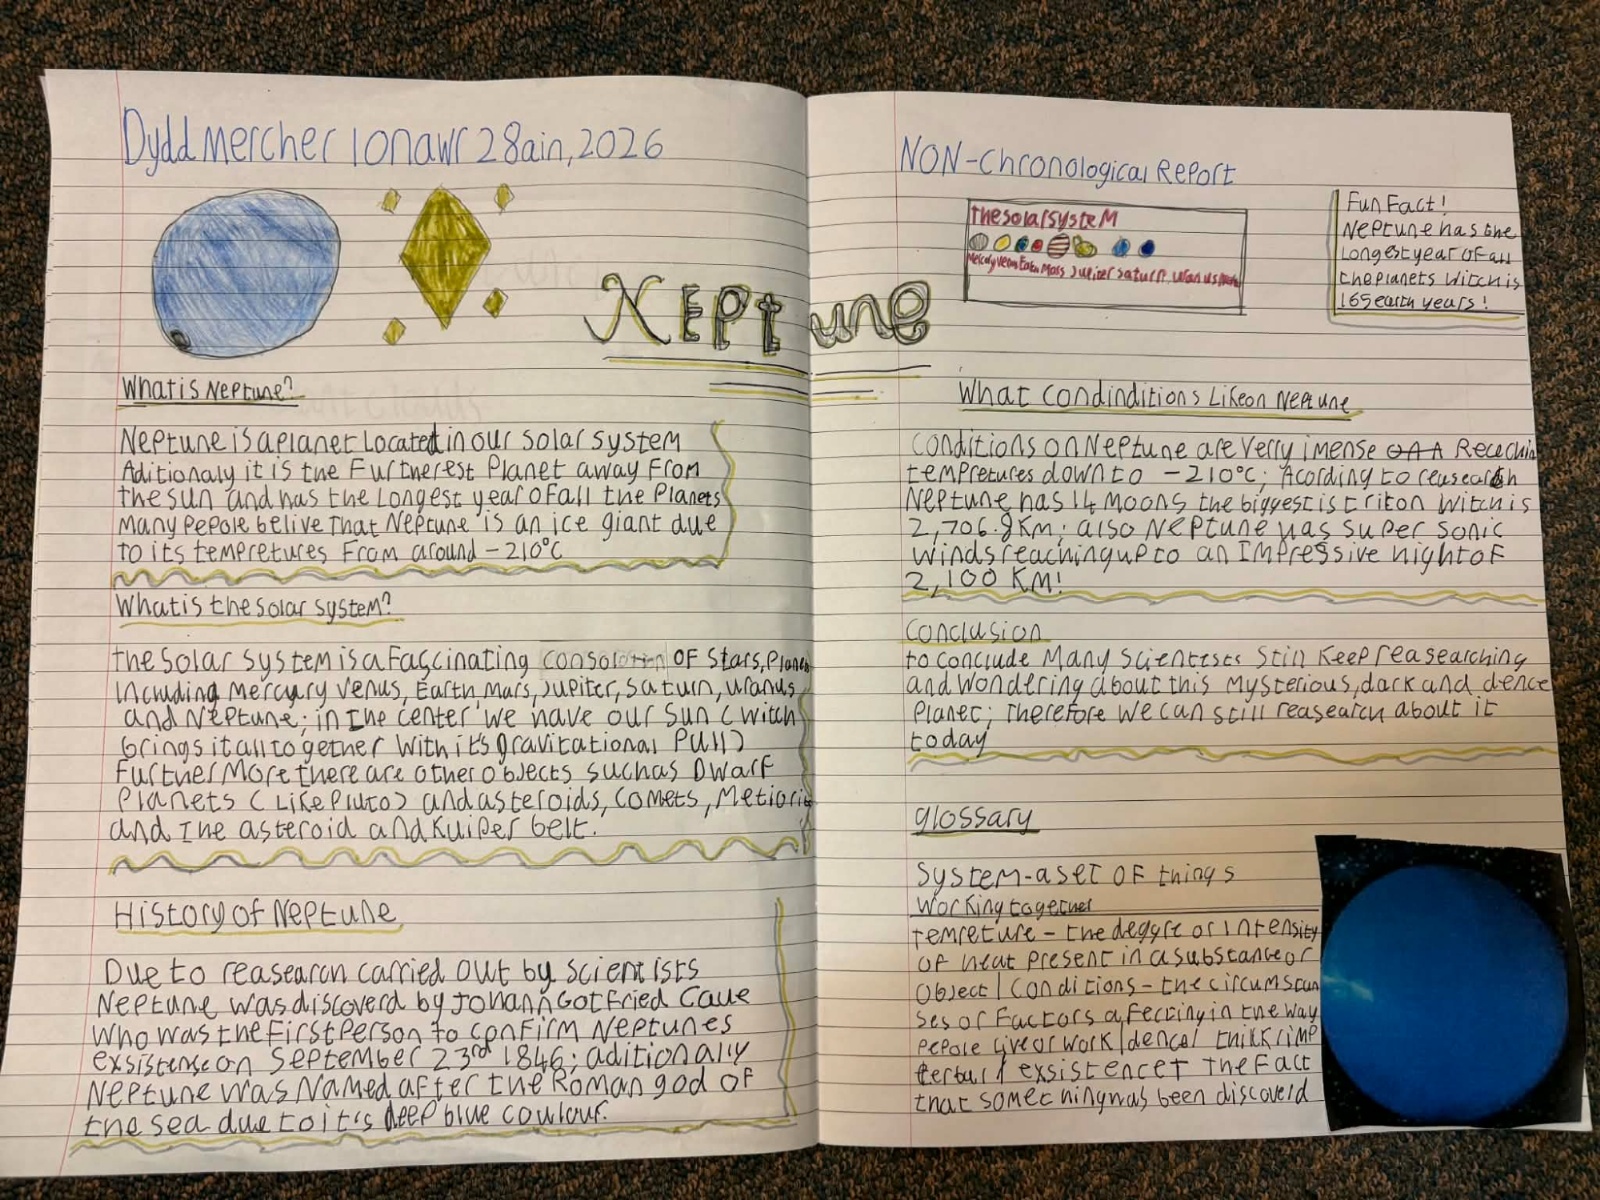 Dydd Mercher Ionawr 28ain, 2026
Neptune
What is Neptune?
Neptune is a planet Located in our solar system
Aditionaly it is the Furtherest Planet away From
the sun and has the Longest year of all the Planets
Many pepole belive that Neptune is an ice giant due
to its tempretures From around -210°C
What is the solar system?
the solar system is a Fascinating of stars, Planets
Including Mercury Venus, Earth, Mars, Jupiter, Saturn, uranus
and Neptune; in the center we have our sun (witch
brings it all together with it's gravitational Pull)
FurtherMore there are other objects such as Dwarf
Planets (Like Pluto) and asteroids, Comets,
and the asteroid and Kuiper belt.
History of Neptune
Due to reasearch carried out by scientists
Neptune was discoverd by Johann Gotfried Gaue
Who was the First Person to confirm Neptunes
exsistense on September 23rd 1846; aditionally
Neptune was Named after the Roman god of
the sea due to it's deep blue coulour.
NON-Chronological Report
the solar system
Mars Jupiter Saturn uranus
Fun Fact!
Neptune has the
Longest year of all
the planets witch is
165 earth years!
What Condinditions Like on Neptune
Conditions on Neptune are verry imense
tempretures down to -210°C; Acording to reusearch
Neptune has 14 Moons the biggest is triton witch is
2,706.8km; also Neptune has super sonic
winds reaching up to an Impressive hight of
2,100 KM!
Conclusion
to conclude Many scientests still Keep reasearching
and wondering about this Mysterious, dark and dence
Planet; therefore we can still reasearch about it
today
glossary
System - a set of things
Working together
Temreture - the deggre or intensity
of heat present in a substance or
object | Conditions - the circumstan
ses or Factors afecting in the way
pepole live or work | dence / thikk / imp
exsistence + the Fact
that something has been discoverd